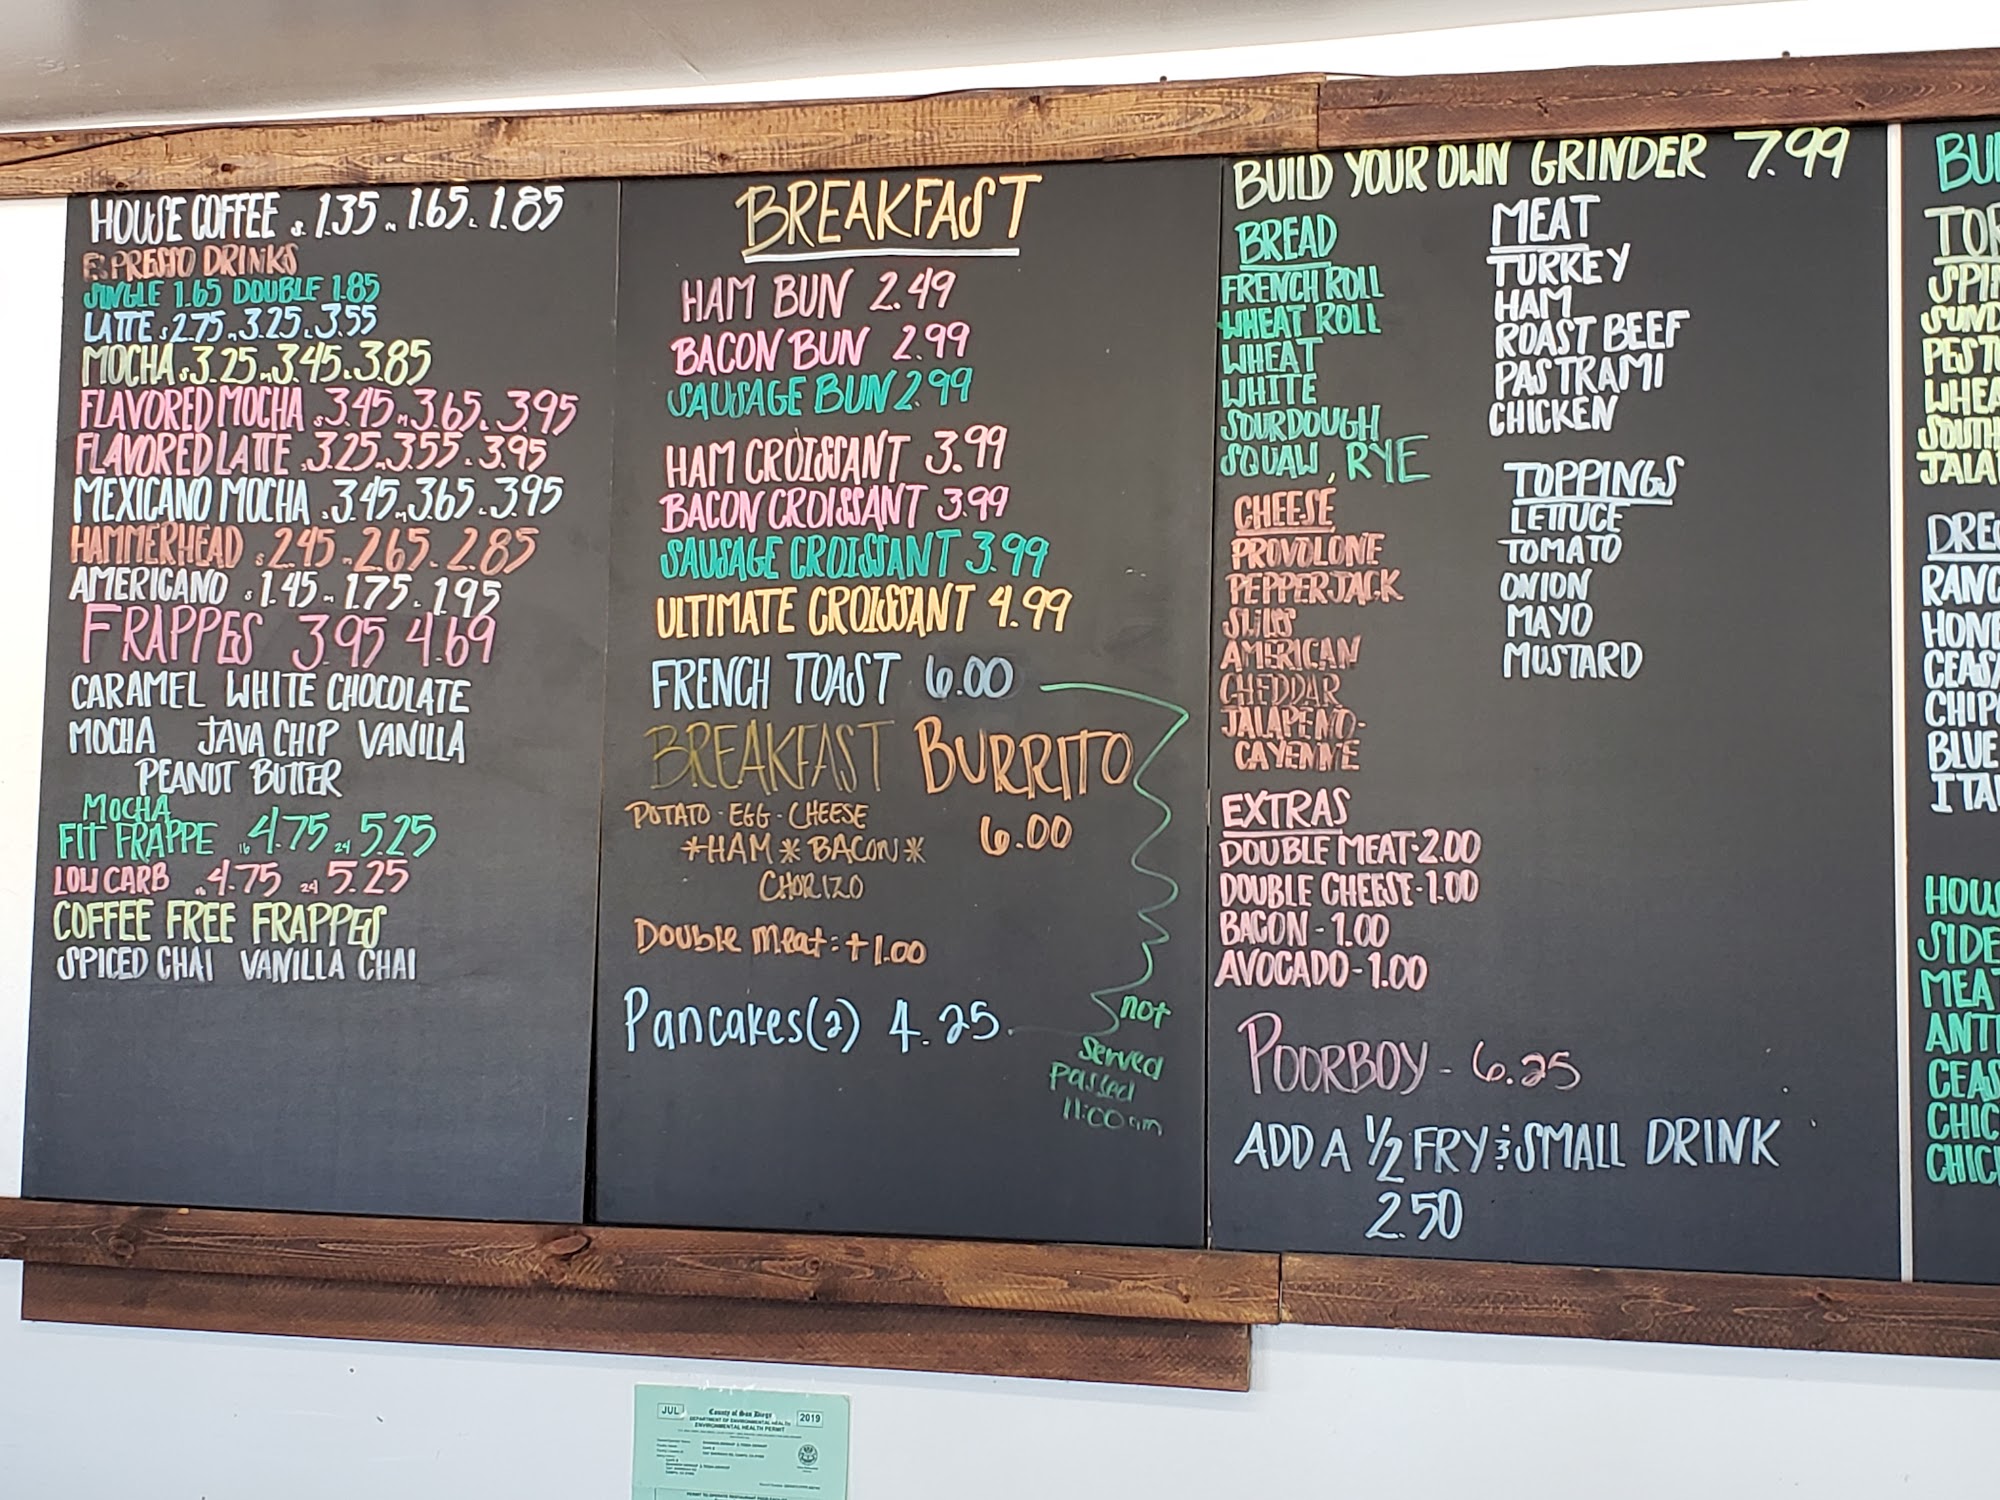 HOUSE COFFEE S. 1.35 M. 1.65 L. 1.85
ESPRESSO DRINKS
SINGLE 1.65 DOUBLE 1.85
LATTE S 2.75 M 3.25 L 3.55
MOCHA S 3.25 M 3.45 L 3.85
FLAVORED MOCHA S 3.45 M 3.65 L 3.95
FLAVORED LATTE S 3.25 M 3.55 L 3.95
MEXICANO MOCHA S 3.45 M 3.65 L 3.95
HAMMERHEAD S 2.45 M 2.65 L 2.85
AMERICANO S 1.45 M 1.75 L 1.95
FRAPPES 3.95 4.69
CARAMEL WHITE CHOCOLATE
MOCHA JAVA CHIP VANILLA
PEANUT BUTTER
MOCHA
FIT FRAPPE 16 4.75 24 5.25
LOW CARB 16 4.75 24 5.25
COFFEE FREE FRAPPES
SPICED CHAI VANILLA CHAI
BREAKFAST
HAM BUN 2.49
BACON BUN 2.99
SAUSAGE BUN 2.99
HAM CROISSANT 3.99
BACON CROISSANT 3.99
SAUSAGE CROISSANT 3.99
ULTIMATE CROISSANT 4.99
FRENCH TOAST 6.00
BREAKFAST BURRITO
POTATO - EGG - CHEESE
6.00
*HAM * BACON *
CHORIZO
Double meat: +1.00
Pancakes(2) 4.25
not
served
passed
11:00am
BUILD YOUR OWN GRINDER 7.99
BREAD
FRENCH ROLL
WHEAT ROLL
WHEAT
WHITE
SOURDOUGH
SQUAW, RYE
CHEESE
PROVOLONE
PEPPERJACK
SWISS
AMERICAN
CHEDDAR
JALAPENO-
CAYENNE
MEAT
TURKEY
HAM
ROAST BEEF
PASTRAMI
CHICKEN
TOPPINGS
LETTUCE
TOMATO
ONION
MAYO
MUSTARD
EXTRAS
DOUBLE MEAT-2.00
DOUBLE CHEESE-1.00
BACON - 1.00
AVOCADO - 1.00
POORBOY - 6.25
ADD A 1/2 FRY & SMALL DRINK
2.50
BUI
TOR
SPIN
SUND
PESTO
WHEA
SOUTH
JALA
DRE
RANC
HONE
CEASA
CHIPO
BLUE
ITA
HOUS
SIDE
MEAT
ANTI
CEAS
CHIC
CHIC
JUL
County of San Diego
2019
DEPARTMENT OF ENVIRONMENTAL HEALTH
ENVIRONMENTAL HEALTH PERMIT